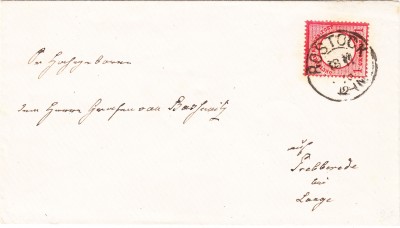 ROSTOCK
Sr Hochgeboren
dem Herrn Grafen von Bassewitz
auf
Prebberede
bei
Laage